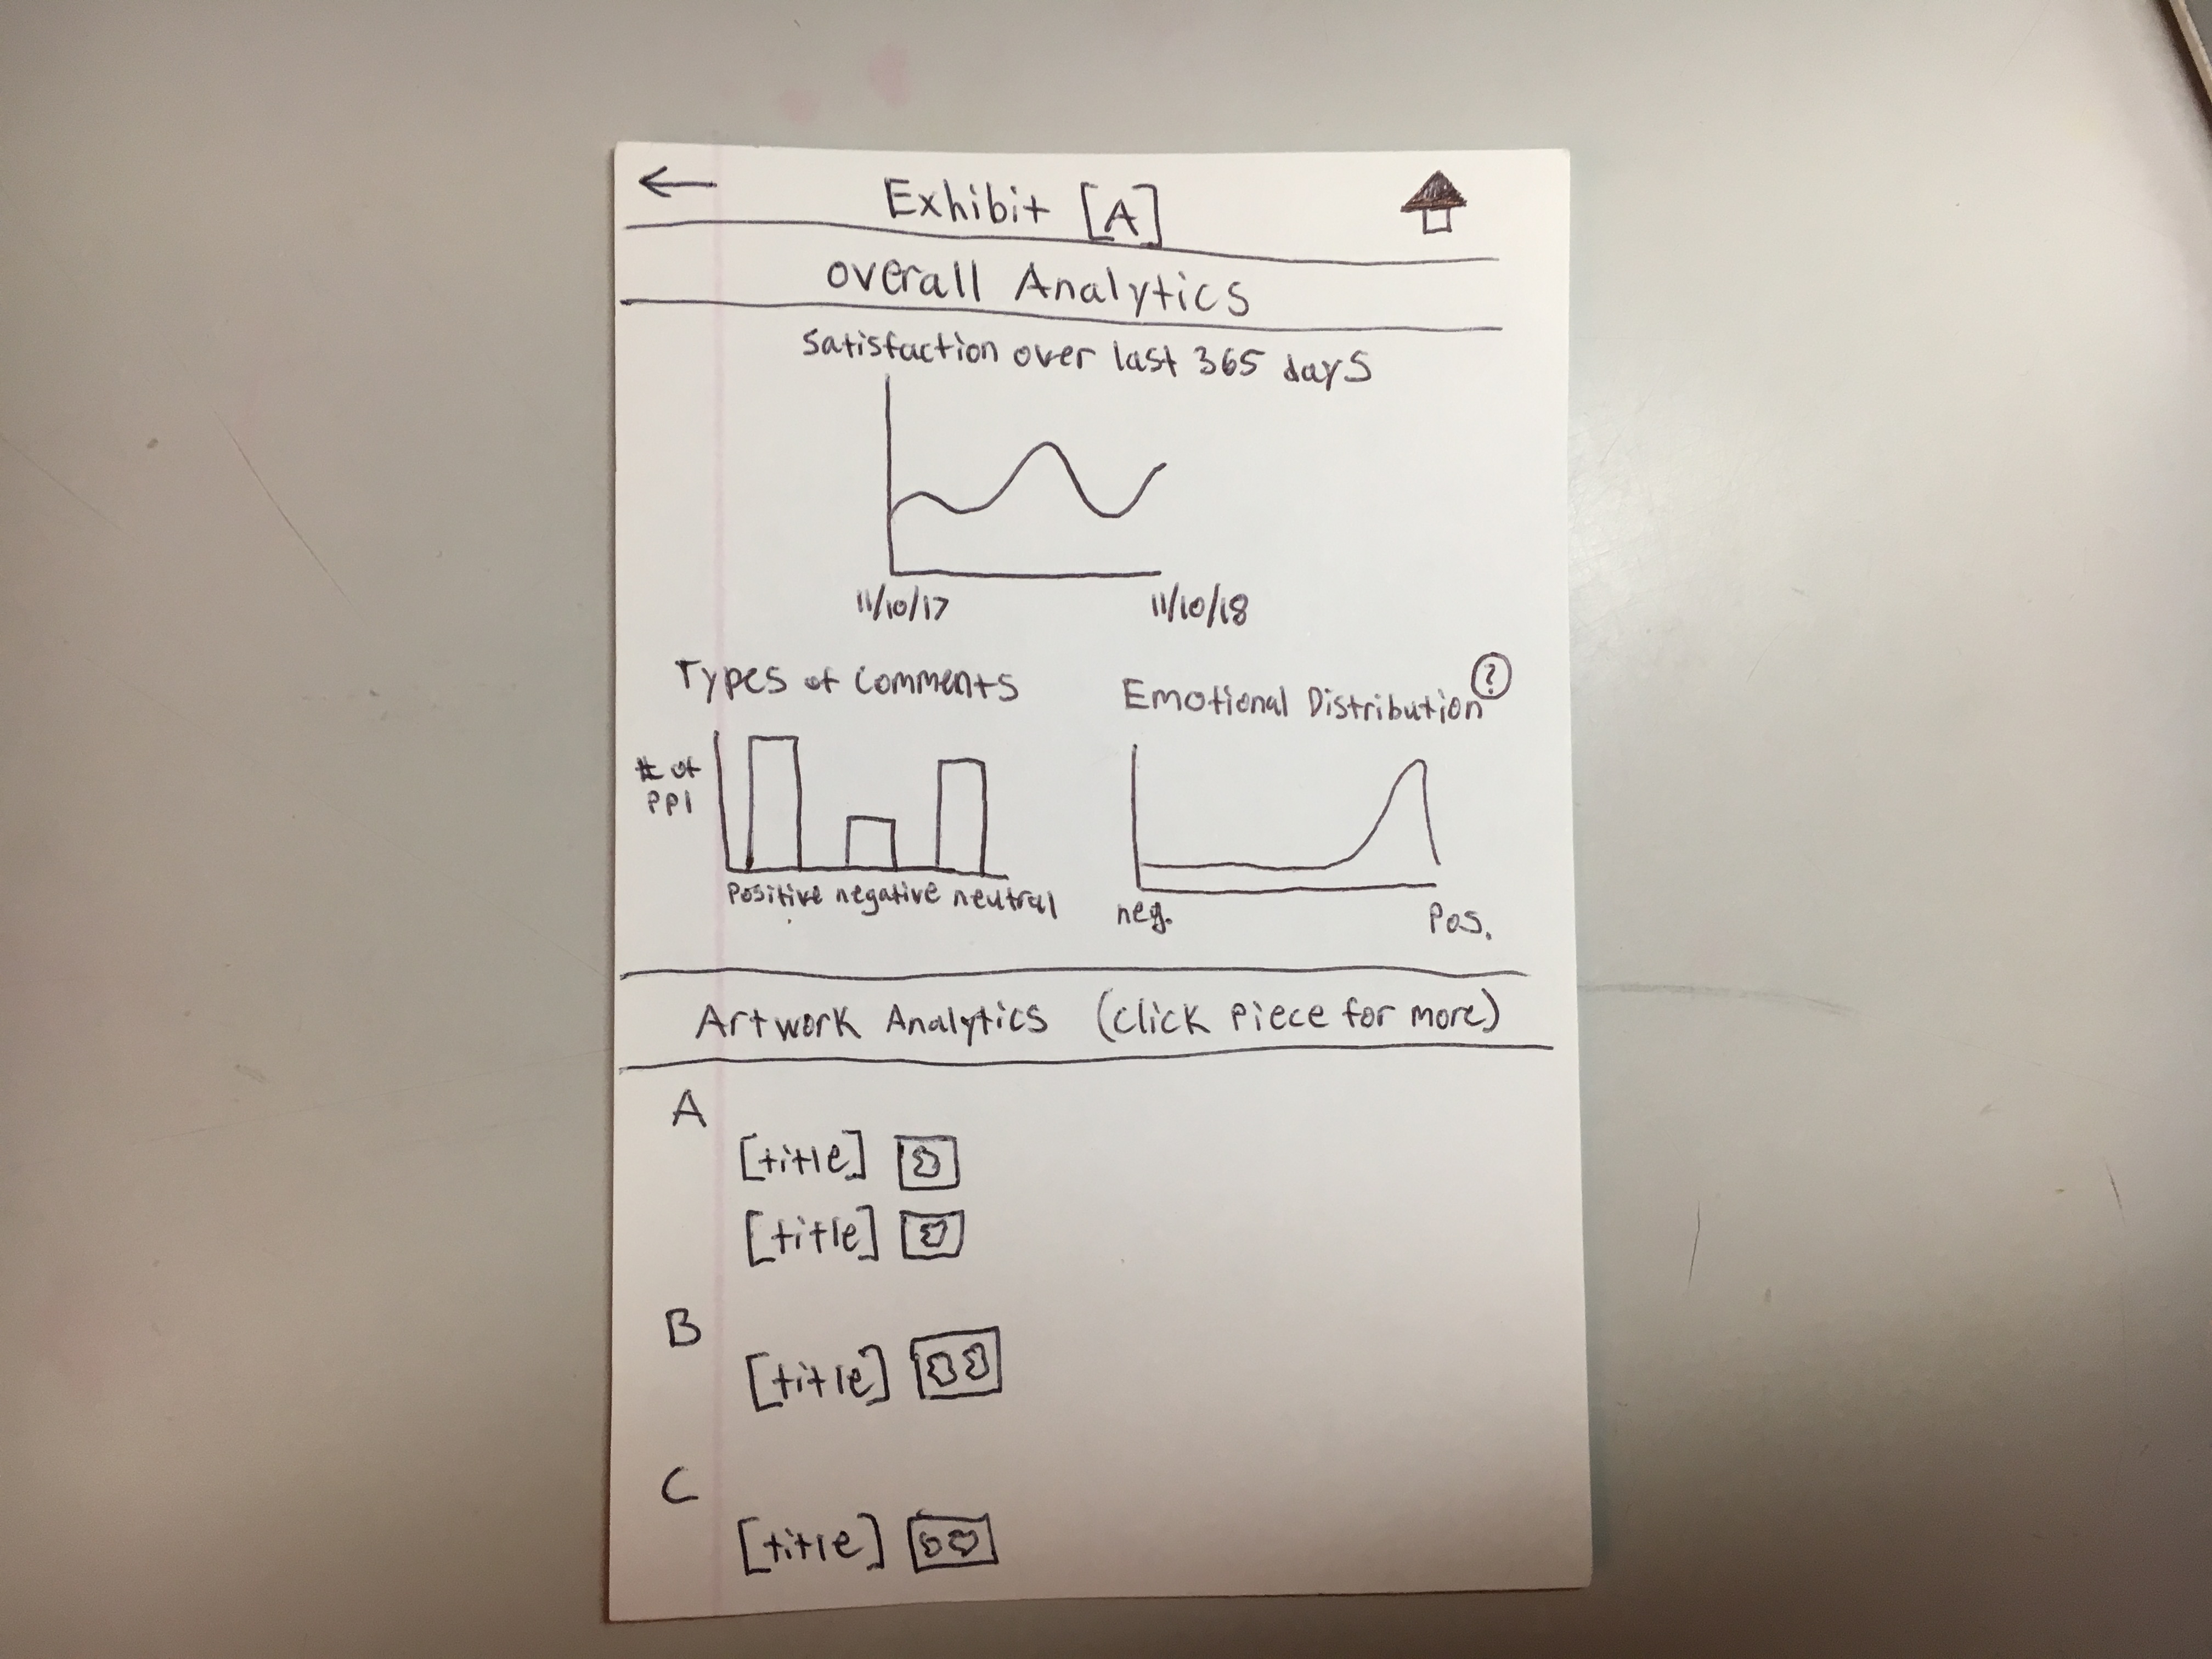 Exhibit [A]
Overall Analytics
Satisfaction over last 365 days
11/10/17 11/10/18
Types of Comments
# of
ppl
positive negative neutral
Emotional Distribution ?
neg. Pos.
Artwork Analytics (click piece for more)
A
[title]
[title]
B
[title]
C
[title]